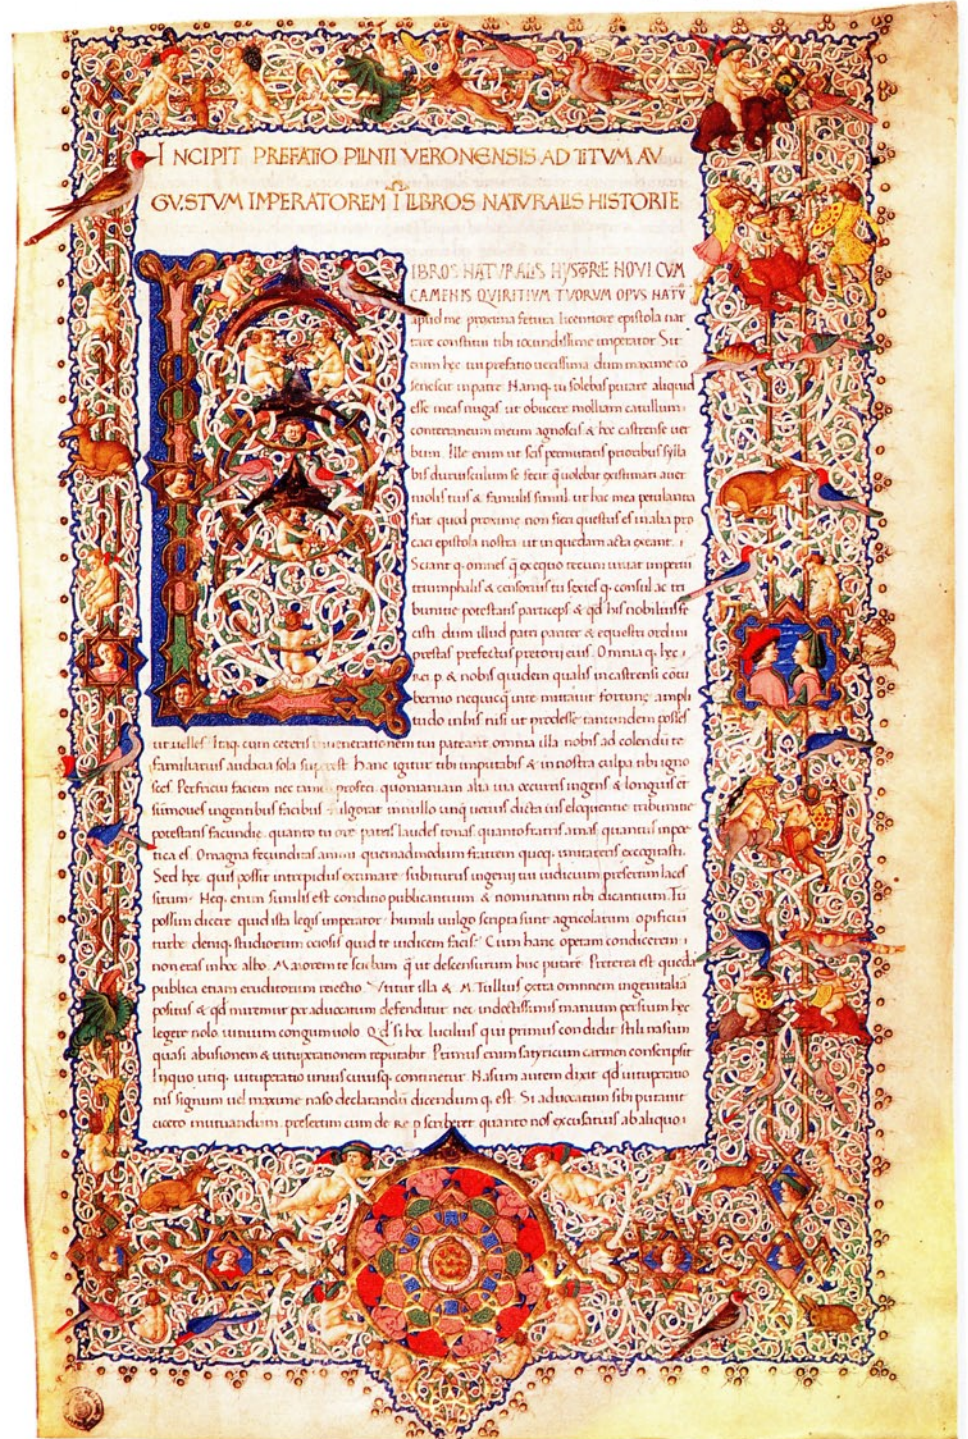 INCIPIT PREFATIO PLINII VERONENSIS AD TITVM AV
GVSTVM IMPERATOREM Ī LIBROS NATVRALIS HISTORIE
LIBROS NATVRALIS HYSTORIE NOVI CVM
CAMENIS QVIRITIVM TVORVM OPVS NATV̄
apud me proxima fetura licentiore epistola nar
rare constitui tibi iocundissime imperator Sit
enim hęc tui prefatio uerissima dum maxime cō
senescit in patre Namq. tu solebas putare aliquid
esse meas nugas ut obiicere molliam catullum
conterraneum meum agnoscis & hoc castrense uer
bum. Ille enim ut scis permutatis prioribus sylla
bis duriusculum se fecit q̄ uolebat existimari a uer
niolis tuis & famulis simul ut hac mea petulantia
fiat quod proxime non fieri questus es in alia pro
caci epistola nostra ut in quedam acta exeant.
Sciant q. omnes q̄ ex equo tecum uiuat imperiū
triumphalis & censorius tu sexies q. consul ac tri
bunitie potestatis particeps & qd his nobilius fe
cisti dum illud patri pariter & equestri ordini
prestas prefectus pretorii eius. Omnia q. hęc
rei p. & nobis quidem qualis in castrensi cōtu
bernio nequicq̄ in te mutauit fortunę ampli
tudo in his nisi ut prodesse tantundem posses
ut uelles Itaq. cum ceteris uenerationem tui pateant omnia illa nobis ad colendū te
familiarius audacia sola superest Hanc igitur tibi imputabis & in nostra culpa tibi igno
sces Perfricui faciem nec tamen profeci. quoniam alia uia occurris ingens & longius et
sūmoues ingentibus facibus fulgorat in nullo unq̄ uerius dicta uis eloquentie tribunitie
potestatis facundie. quanto tu ore patris laudes tonas quanto fratris amas quantus in poe
tica es. O magna fęcunditas animi quemadmodum fratrem quoq. imitareris excogitasti.
Sed hęc quis possit intrepidus extimare subiturus ingenij tui iudicium presertim laces
situm. Neq. enim similis est conditio publicantium & nominatim tibi dicantium. Tū
possim dicere quid ista legis imperator humili uulgo scripta sunt agricolarum opificū
turbe deniq. studiorum ociosis quid te iudicem facis Cum hanc operam condicerem
non eras in hoc albo Maiorem te sciebam q̄ ut descensurum huc putarē Preterea est quedā
publica etiam eruditorum reiectio. Vtitur illa & M. Tullius extra omnem ingenii alia
positus & qd miremur per aduocatum defenditur nec indoctissimis manium persium hęc
legere nolo iunium congum uolo Qd̄ si hoc lucilius qui primus condidit stili nasum
quasi abusionem & uituperationem reputabit Primus enim satyricum carmen conscripsit
In quo utiq. uituperatio unius cuiusq. continetur Nasum autem dixit qd uituperatio
nis signum uel maxime naso declarandū dicendum q. est. Si aduocatum sibi putauit
cicero mutuandum. presertim cum de Re p scriberet quanto nos excusatius ab aliquo